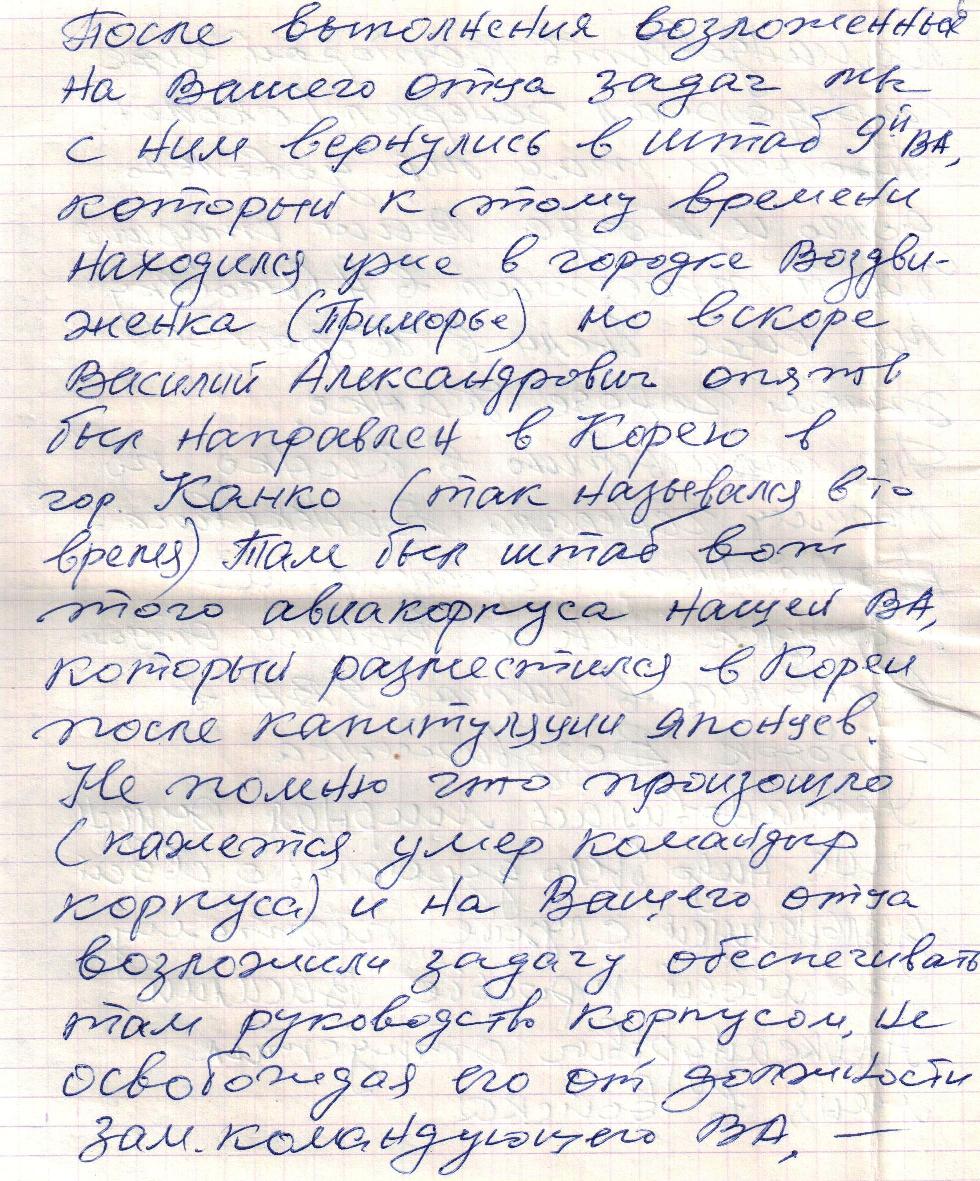 После выполнения возложенных
на Вашего отца задач мы
с ним вернулись в штаб 9й ВА,
который к этому времени
находился уже в городке Воздви-
женка (Приморье) но вскоре
Василий Александрович опять
был направлен в Корею в
гор. Канко (так назывался в то
время) Там был штаб вот
этого авиакорпуса нашей ВА,
который разместился в Корее
после капитуляции японцев.
Не помню что произошло
(кажется умер командир
корпуса) и на Вашего отца
возложили задачу обеспечивать
там руководство корпусом, не
освобождая его от должности
зам. командующего ВА, —